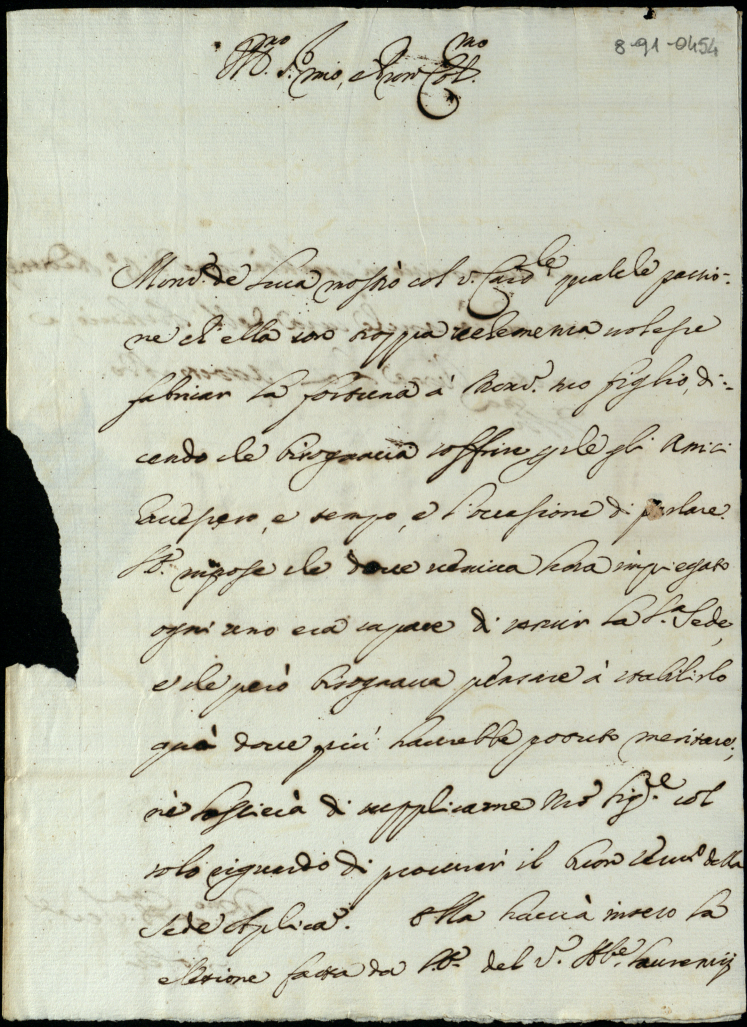 8-91-0454
Ill.mo S.r mio, e Pron Col.mo
Mons.r de Luca mostrò col S.r Card.le qualche passio-
ne ch'ella con troppa veemenza volesse
fabricar la fortuna à Mons.r suo figlio, di-
cendo che bisognava soffrire che gli Amici
havessero, e tempo, e l'occasione di parlare.
S.E. rispose che dove veniva hora impiegato
ogni uno era capace di servir la S.a Sede,
e che però bisognava pensare à stabilirlo
quà dove più haverebbe potuto meritare;
nè lascierà di supplicarne No.ro Sig.re col
solo riguardo di procurar il buon serv.o della
Sede Aplica. Ella haverà inteso la
elettione fatta da S.B. del S.r Abb.e Laurenzij